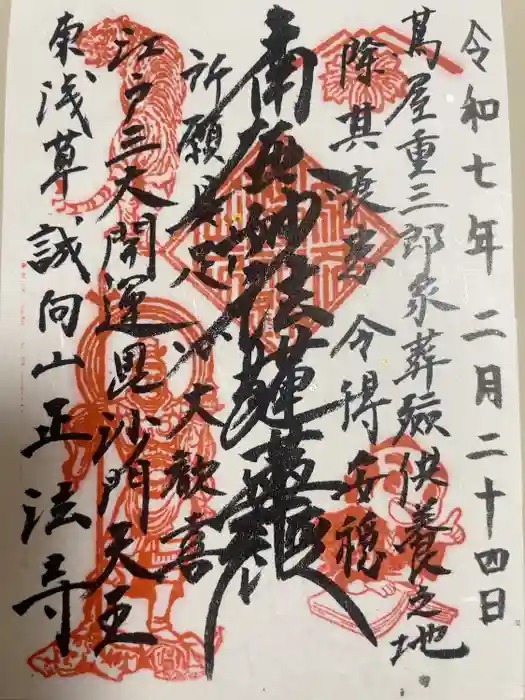 令和七年二月二十四日
蔦屋重三郎家葬殮供養之地
除其衰患令得安穏
南無妙法蓮華経
所願具足心大歓喜
江戸三大開運毘沙門天王
東浅草 誠向山正法寺